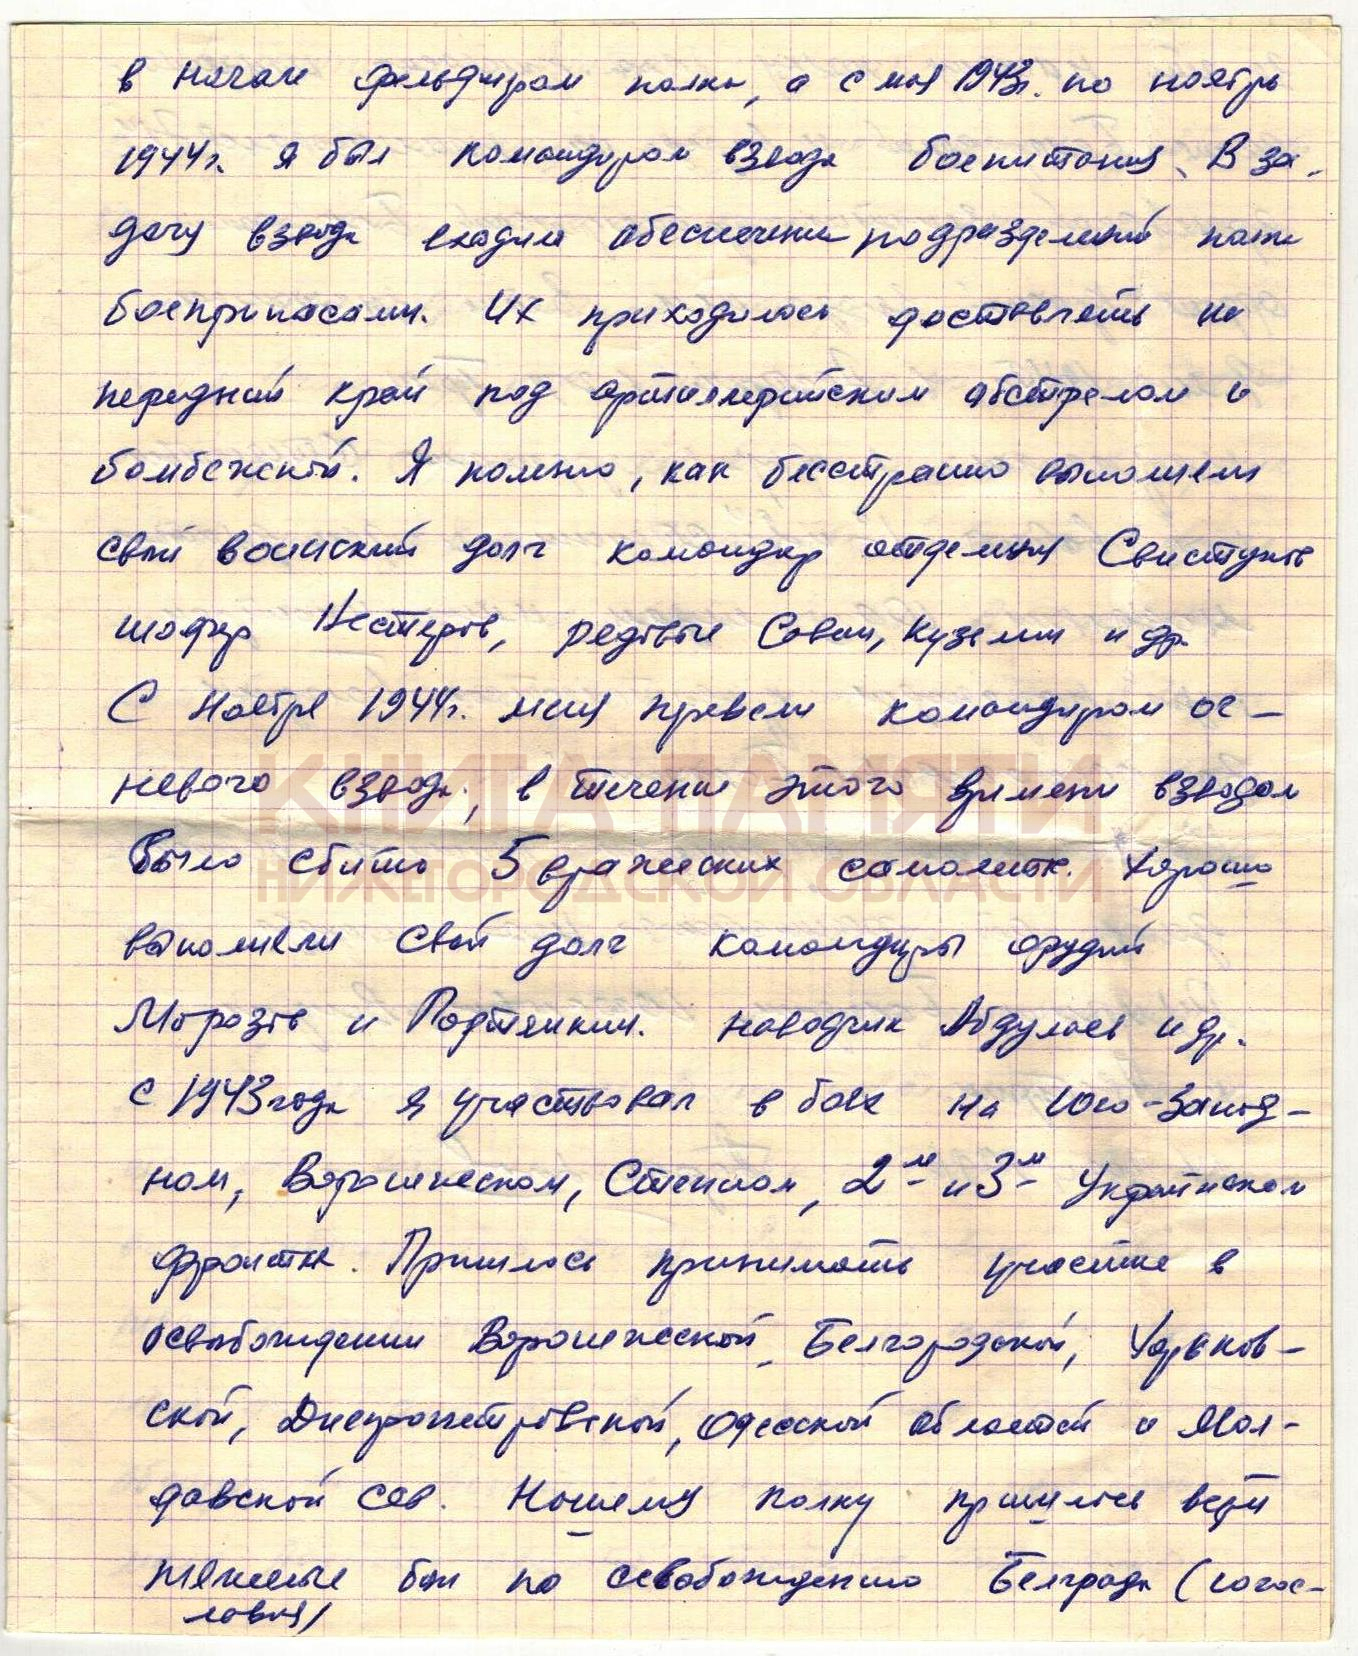 в начале фельдшером полка, а с мая 1943г. по ноябрь
1944г. я был командиром взвода боепитания. В за-
дачу взвода входила обеспечение подразделений полка
боеприпасами. Их приходилось доставлять на
передний край под артиллерийским обстрелом и
бомбежкой. Я помню, как бесстрашно выполняли
свой воинский долг командир отделения Свистунов
шофер Нестеров, рядовые Савин, Кузьмин и др.
С Ноября 1944г. меня перевели командиром ог-
невого взвода, в течение этого времени взводом
было сбито 5 вражеских самолетов. Хорошо
выполняли свой долг командиры орудий
Морозов и Портянкин. наводчик Абдулаев и др.
С 1943 года я участвовал в боях на Юго-Запад-
ном, Воронежском, Степном, 2м и 3м Украинском
фронтах. Пришлось принимать участие в
освобождении Воронежской, Белгородской, Харьков-
ской, Днепропетровской, Одесской областей и Мол-
давской ССР. Нашему полку пришлось вести
тяжелые бои по освобождению Белграда (Югос-
лавия)
КНИГА ПАМЯТИ
НИЖЕГОРОДСКОЙ ОБЛАСТИ